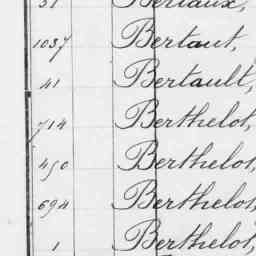 31 Bertaux,
1037 Bertaut,
41 Bertault,
714 Berthelot,
450 Berthelot,
694 Berthelot,
1 Berthelot,